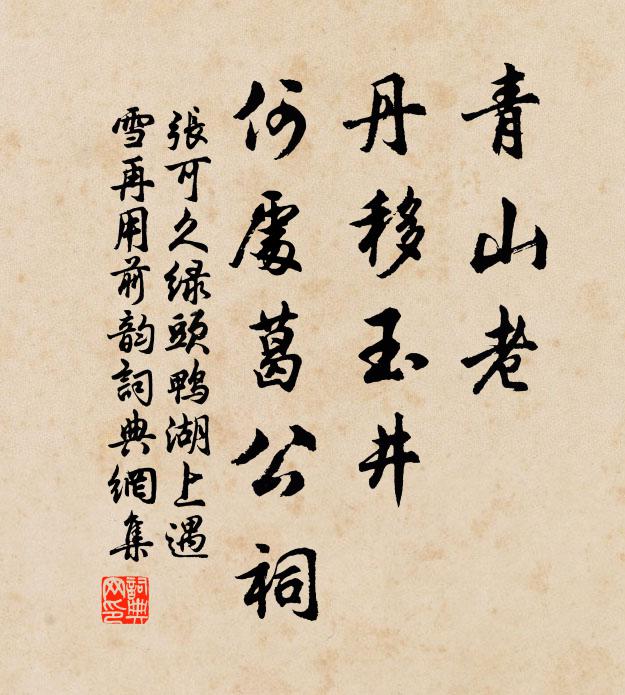 青山老
丹移玉井
何處葛公祠
張可久綠頭鴨湖上遇
雪再用前韵詞典網集
詞典網印